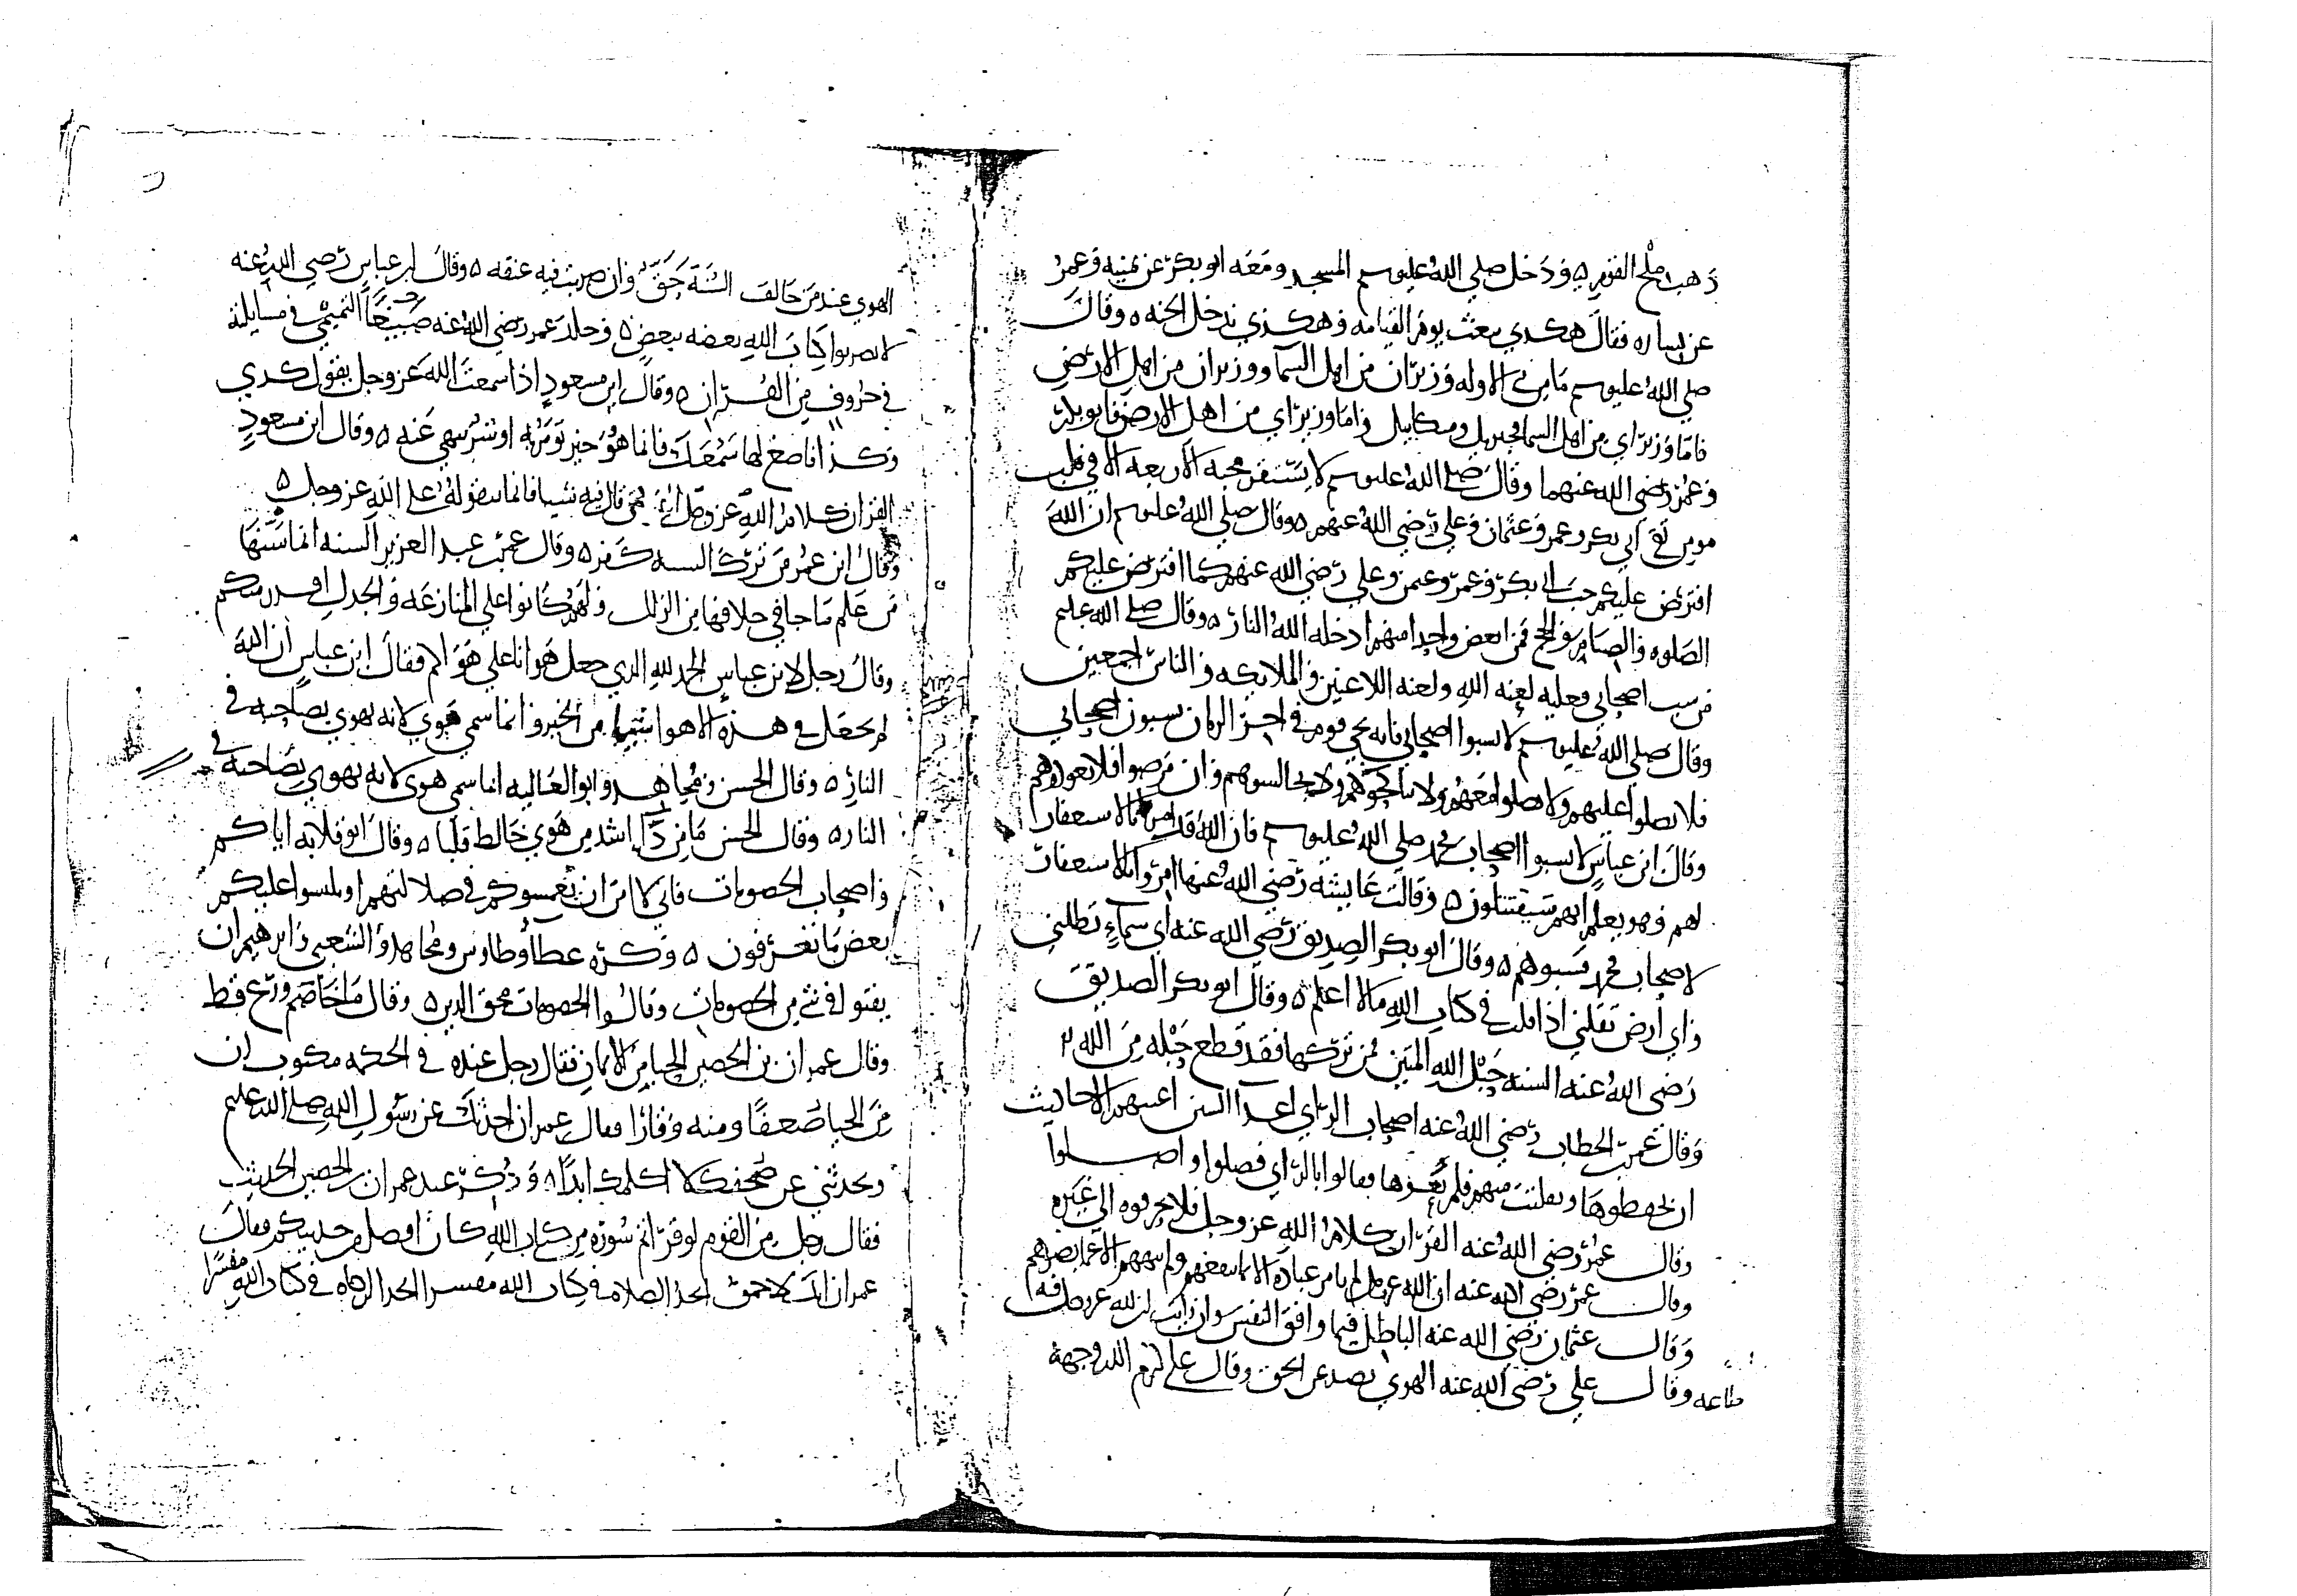 ذهب ملح القوم ۵ ودخل صلي الله عليه وسلم المسجد ومعه ابو بكر عن يمنيه وعمر
عن يساره فقال هكذي نبعث يوم القيامه وهكذي ندخل الجنه ۵ وقال
صلي الله عليه وسلم مامن نبي الا وله وزيران من اهل السما ووزيران من اهل الارض
فاما وزيراي من اهل السما فجبريل وميكاييل واما وزيراي من اهل الارض فابو بكر
وعمر رضي الله عنهما وقال صلي الله عليه وسلم لا يستقر محبه الاربعه الا في قلب
مومن تقي ابي بكر وعمر وعثمان وعلي رضي الله عنهم ۵ وقال صلي الله عليه وسلم ان الله
افترض عليكم حب ابي بكر وعمر وعثمن وعلي رضي الله عنهم كما افترض عليكم
الصلوه والصيام والحج فمن ابغض واحدا منهم ادخله الله النار ۵ وقال صلي الله عليه
من سب اصحابي فعليه لعنه الله ولعنه اللاعنين والملايكه والناس اجمعين
وقال صلي الله عليه وسلم لا تسبوا اصحابي فانه يجي قوم في اخر الزمان يسبون اصحابي
فلا تصلوا عليهم ولا تصلوا معهم ولا تناكحوهم ولا تجالسوهم وان مرضوا فلا تعودوهم
وقال ابن عباس لا تسبوا اصحاب محمد صلي الله عليه وسلم فان الله قد امر بالاستغفار
لهم وهو يعلم انهم سيقتتلون ۵ وقالت عايشه رضي الله عنها امروا بالاستغفار
لاصحاب محمد فسبوهم ۵ وقال ابو بكر الصديق رضي الله عنه اي سماء تظلني
واي ارض تقلني اذا قلت في كتاب الله مالا اعلم ۵ وقال ابو بكر الصديق
رضي الله عنه السنه حبل الله المتين فمن تركها فقد قطع حبله من الله
وقال عمر بن الخطاب رضي الله عنه اصحاب الراي اعدا السنن اعيتهم الاحاديث
ان يحفظوها وتفلتت منهم فلم يعوها فقالوا بالراي فضلوا واضلوا
وقال عمر رضي الله عنه القران كلام الله عز وجل فلا تحرفوه الي غيره
وقال عمر رضي الله عنه ان الله عز وجل لم يامر عباده الا بما ينفعهم ولم ينههم الا عما يضرهم
وقال عثمان رضي الله عنه الباطل فيما وافق النفس وان رايت ان لله عز وجل فيه
طاعه وقال علي رضي الله عنه الهوي يصد عن الحق وقال علي كرم الله وجهه
الهوي عند من خالف السنة حق وان ضربت فيه عنقه ۵ وقال ابن عباس رضي الله عنه
لا تضربوا كتاب الله بعضه ببعض ۵ وجلد عمر رضي الله عنه صبيغا التميمي في مسايلته
في حروف من القران ۵ وقال ابن مسعود اذا سمعت الله عز وجل يقول كدي
وكذا فاصغ لها سمعك فانما هو خير تومر به او شر تنهي عنه ۵ وقال ابن مسعود
القران كلام الله عز وجل فمن قال فيه شيا فانما يتقوله علي الله عز وجل ۵
وقال ابن عمر من ترك السنه كفر ۵ وقال عمر بن عبد العزيز السنه انما سنها
من علم ما جا في خلافها من الزلل ولهم كانوا علي المنازعه والجدل اقدر منكم
وقال رجل لابن عباس الحمد لله الذي جعل هوانا علي هواكم فقال ابن عباس ان الله
لم يجعل في هذه الاهوا شيا من الخير وانما سمي هوي لانه يهوي بصاحبه في
النار ۵ وقال الحسن ومجاهد وابو العاليه انما سمي هوي لانه يهوي بصاحبه في
النار ۵ وقال الحسن مامن داء اشد من هوي خالط قلبا ۵ وقال ابو قلابه اياكم
واصحاب الخصومات فاني لا امن ان يغمسوكم في ضلالتهم او يلبسوا عليكم
بعض ما تعرفون ۵ وكره عطا وطاوس ومجاهد والشعبي وابرهيم ان
يفتوا في شي من الخصومات وقالوا الخصومات محق الدين ۵ وقال ما خاصم ورع قط
وقال عمران بن الحصين الحيا من الايمان فقال رجل عنده في الحكمه مكتوب ان
من الحيا ضعفا ومنه وقارا فقال عمران احدثك عن رسول الله صلي الله عليه
وتحدثني عن صحفك لا اكلمك ابدا ۵ وذكر عند عمران بن الحصين الحديث
فقال رجل من القوم لو قراتم سورة من كتاب الله كان افضل من حديثكم فقال
عمران انك لاحمق اتجد الصلاه في كتاب الله مفسرا اتجد الزكاه في كتاب الله مفسرا